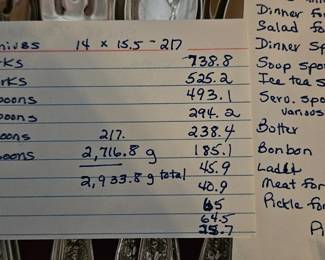 nives 14 x 15.5 - 217
rks 738.8
rks 525.2
poons 493.1
poons 294.2
oons 217. 238.4
oons 2,716.8 g 185.1
2,933.8 g total 45.9
40.9
65
64.5
35.7
Dinner for
Salad fo
Dinner sp
Soup spoo
Ice tea s
Serv. spo
various
Butter
Bonbon
Ladel
Meat for
Pickle for
Pi